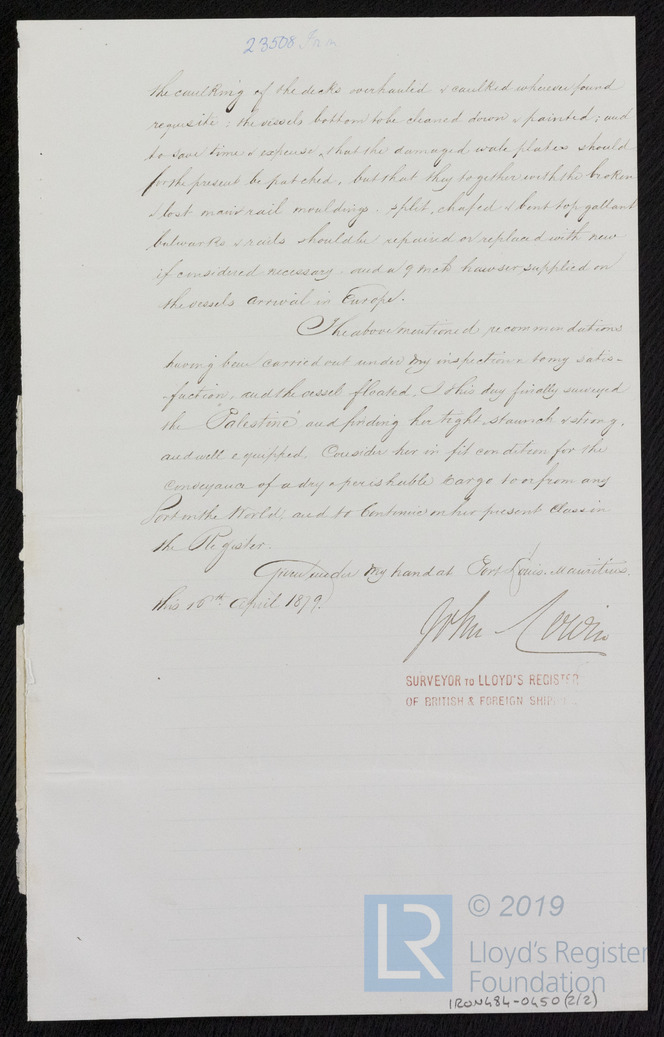 23508 Irn
the caulking of the decks overhauled & caulked wherever found
requisite; the vessels bottom to be cleaned down & painted; and
to save time & expense, that the damaged wale plates should
for the present be patched, but that they together with the broken
& lost main rail mouldings, split, chafed & bent top gallant
bulwarks & rails should be repaired or replaced with new
if considered necessary, and a 9 inch hawser supplied on
the vessels arrival in Europe.
The above mentioned recommendations
having been carried out under my inspection & to my satis-
faction, and the vessel floated, I this day finally surveyed
the "Palestine" and finding her tight, staunch & strong,
and well equipped, Consider her in fit condition for the
Conveyance of a dry & perishable Cargo to or from any
Port in the World, and to Continue in her present Class in
the Register.
Given under my hand at Port Louis, Mauritius.
this 16th April 1879.
John
SURVEYOR TO LLOYD'S REGISTER
OF BRITISH & FOREIGN SHIP
LR
© 2019
Lloyd's Register
Foundation
IRON484-0450(2/2)